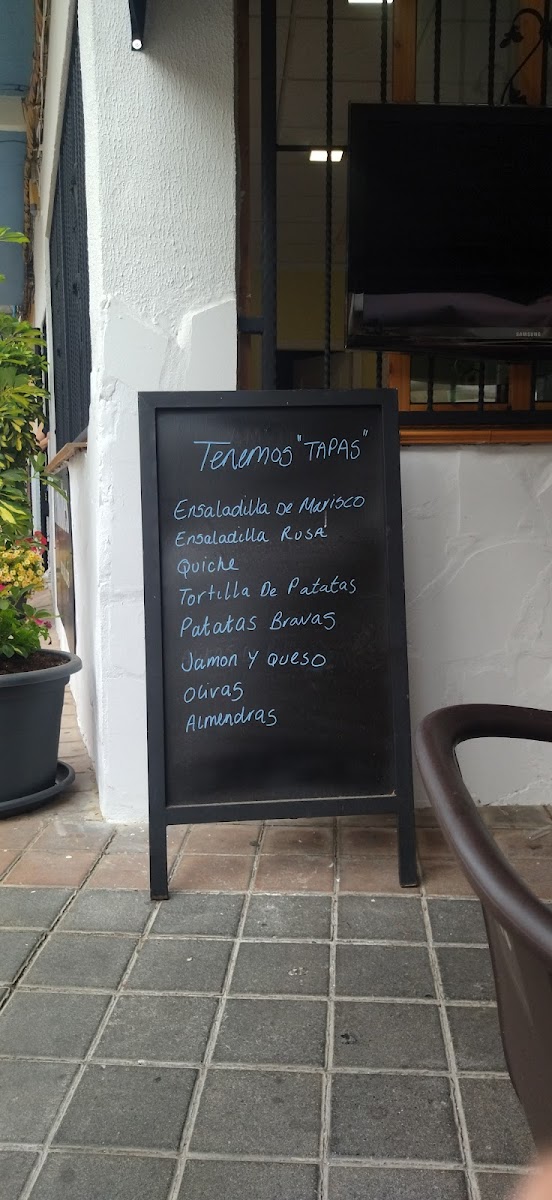 SAMSUNG
Tenemos "TAPAS"
Ensaladilla De Marisco
Ensaladilla Rusa
Quiche
Tortilla De Patatas
Patatas Bravas
Jamon Y Queso
Olivas
Almendras